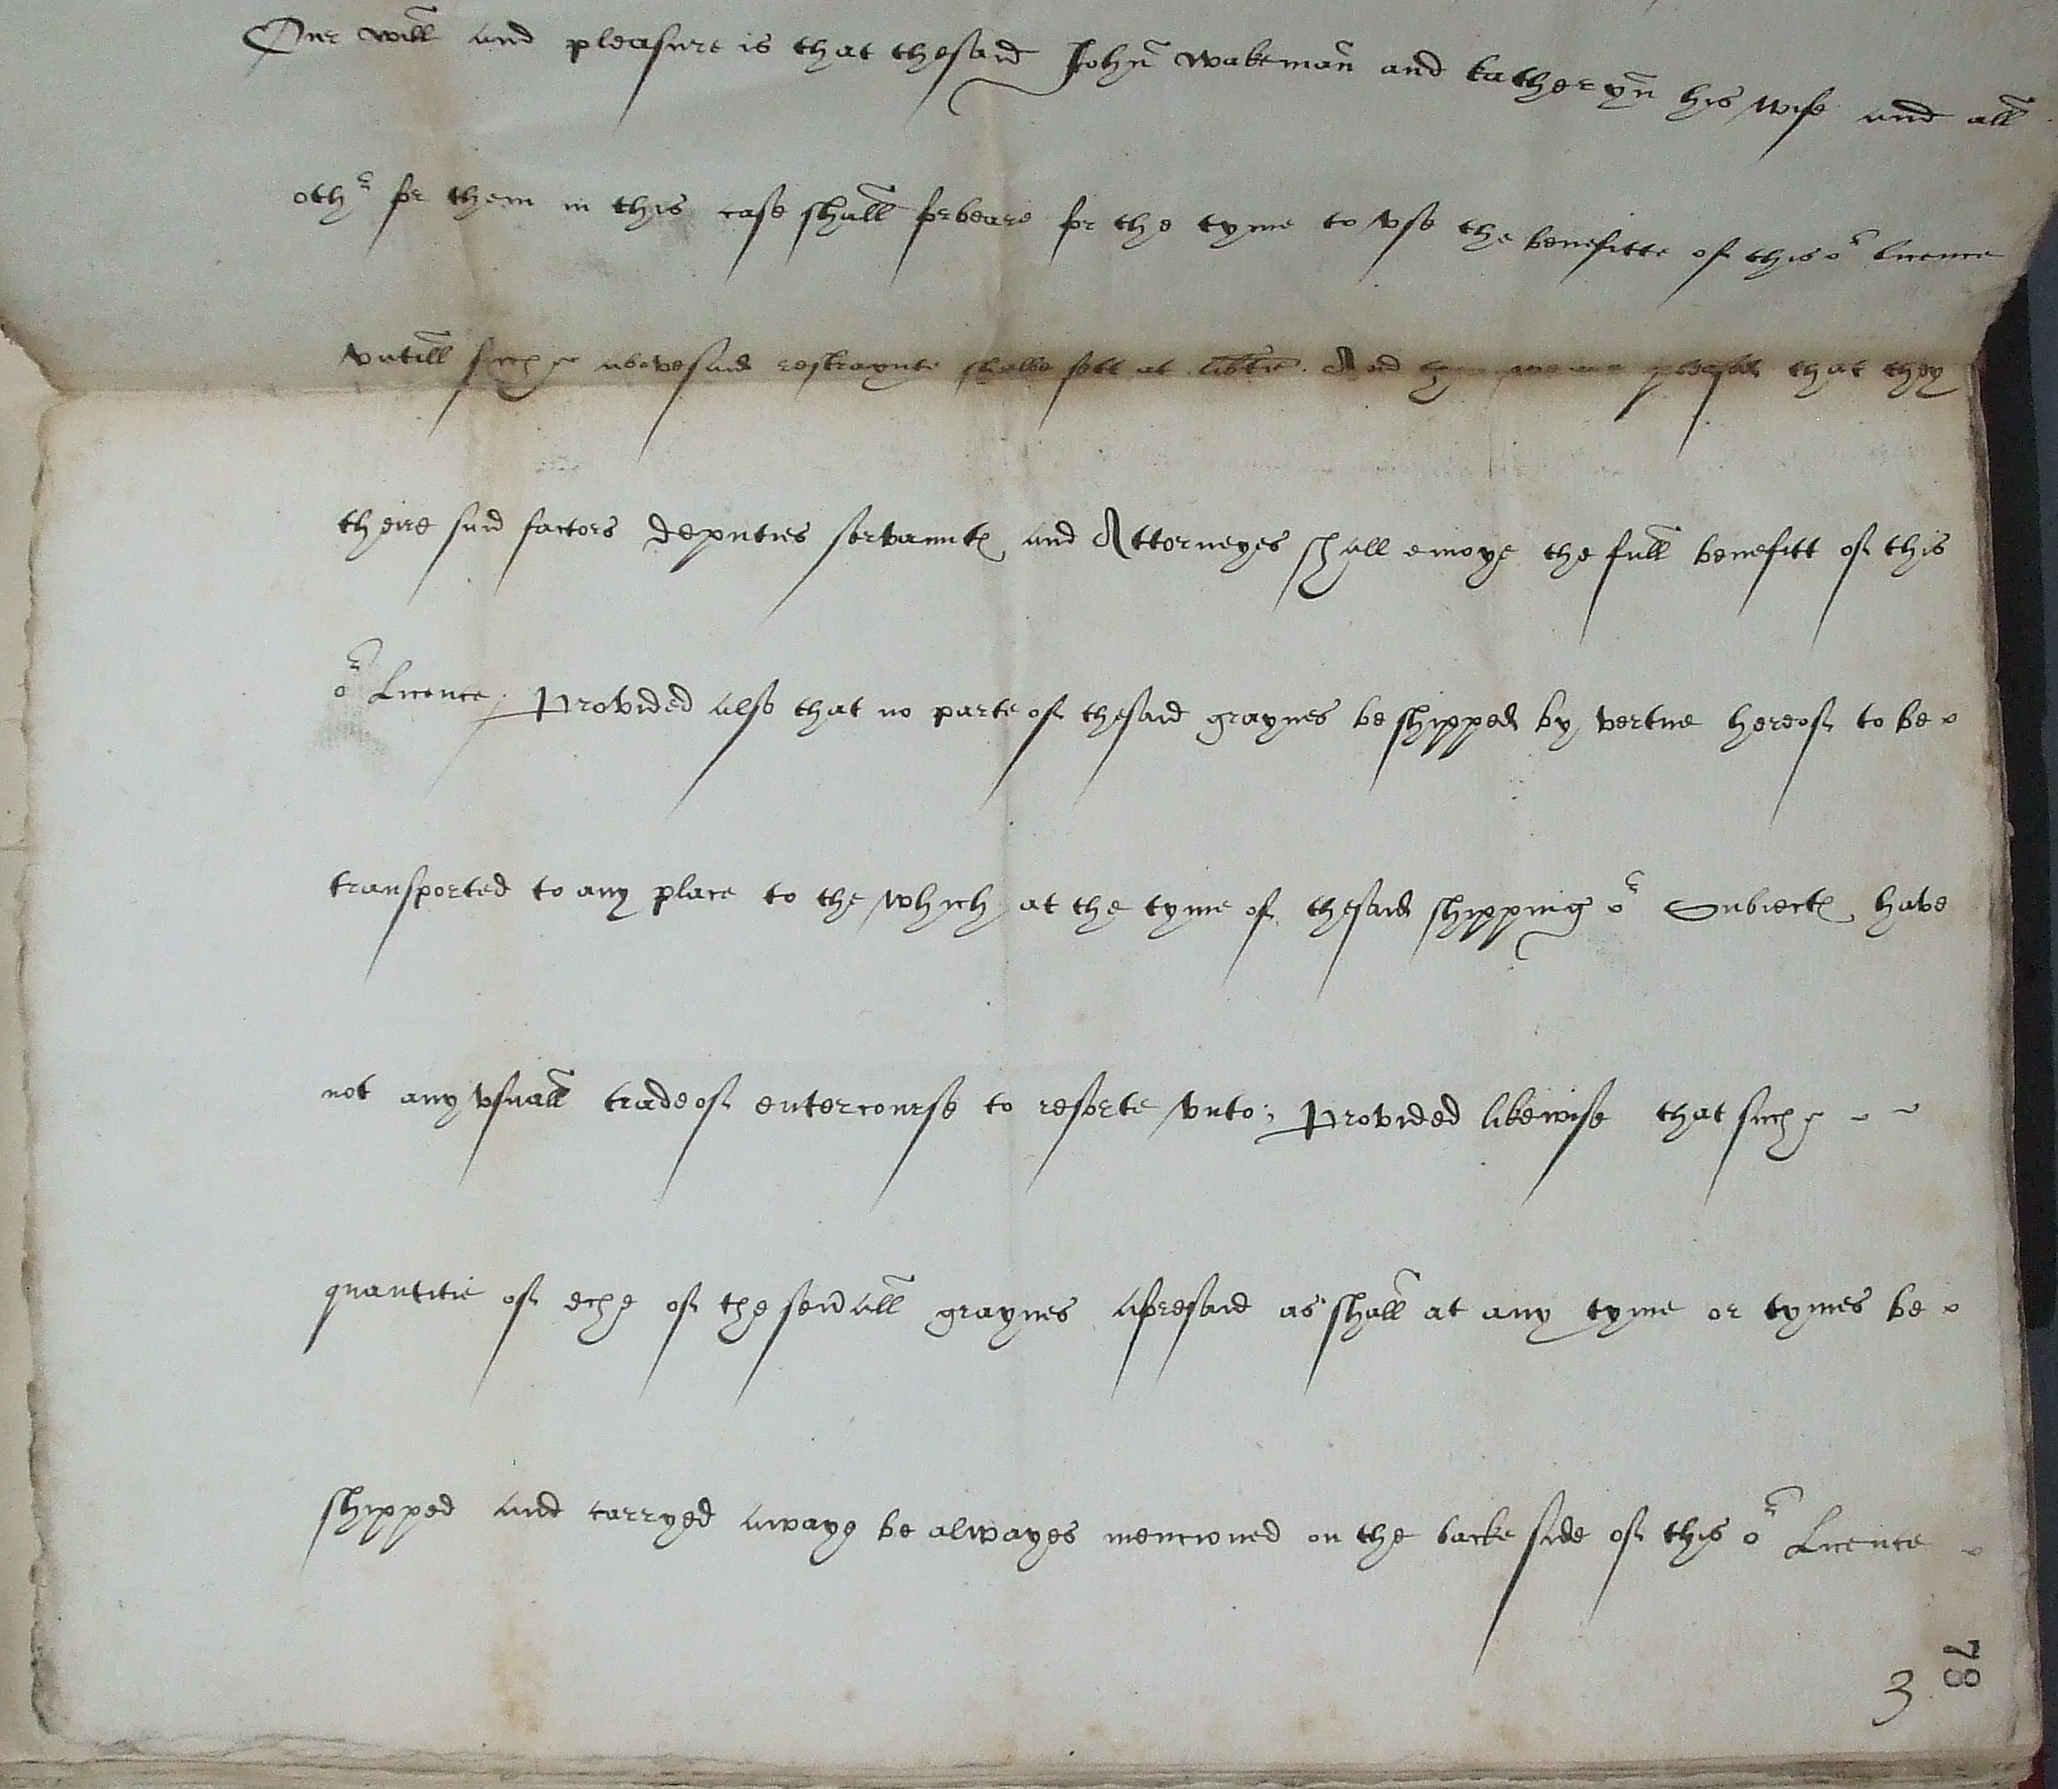 Our will and pleasure is that thesaid John wakeman and katheryn his wife and all
othr for them in this case shall forbeare for the tyme to vse the benefitte of this or licence
vntill suche abovesaid restraynte shalbe sett at libtie. And that they
theire said factors deputies servauntes and Attorneyes shall enioye the full benefitt of this
or Licence, Provided also that no parte of thesaid graynes be shipped by vertue hereof to be
transported to any place to the which at the tyme of thesaid shipping or Subiectes have
not any vsuall trade of entercourse to resorte vnto; Provided likewise that suche
quantitie of eche of the sevall graynes aforesaid as shall at any tyme or tymes be
shipped and carryed awaye be alwayes mencioned on the backe side of this or Licence
78
3